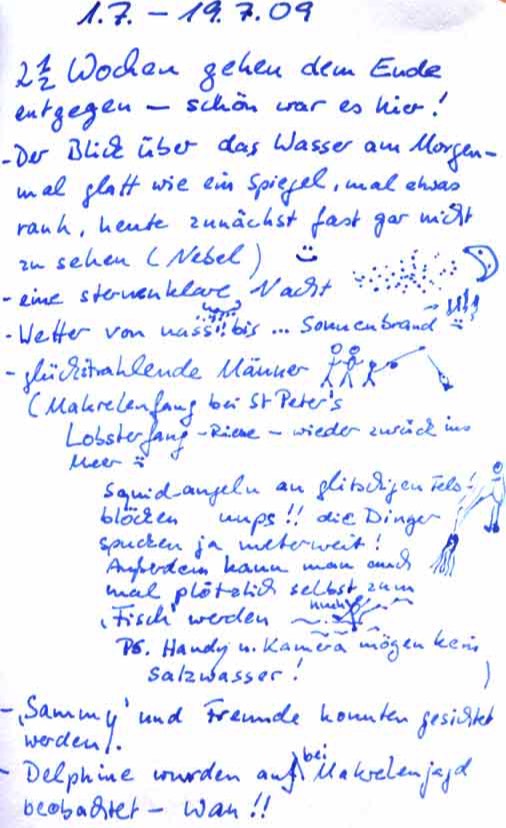 1.7. – 19.7.09
2 1/2 Wochen gehen dem Ende
entgegen – schön war es hier!
- Der Blick über das Wasser am Morgen –
mal glatt wie ein Spiegel, mal etwas
rauh, heute zunächst fast gar nicht
zu sehen (Nebel)
- eine sternenklare Nacht
- Wetter von nass!! bis ... Sonnenbrand
- glückstrahlende Männer
(Makrelenfang bei St Peter's
Lobsterfang – Riese – wieder zurück ins
Meer
Squid-angeln an glitschigen Fels-
blöcken uups!! die Dinger
spucken ja meterweit!
Außerdem kann man auch
mal plötzlich selbst zum
'Fisch' werden
huch
PS. Handy u. Kamera mögen kein
Salzwasser! )
- 'Sammy' und Freunde konnten gesichtet
werden!
- Delphine wurden auf bei Makrelenjagd
beobachtet – Wau!!